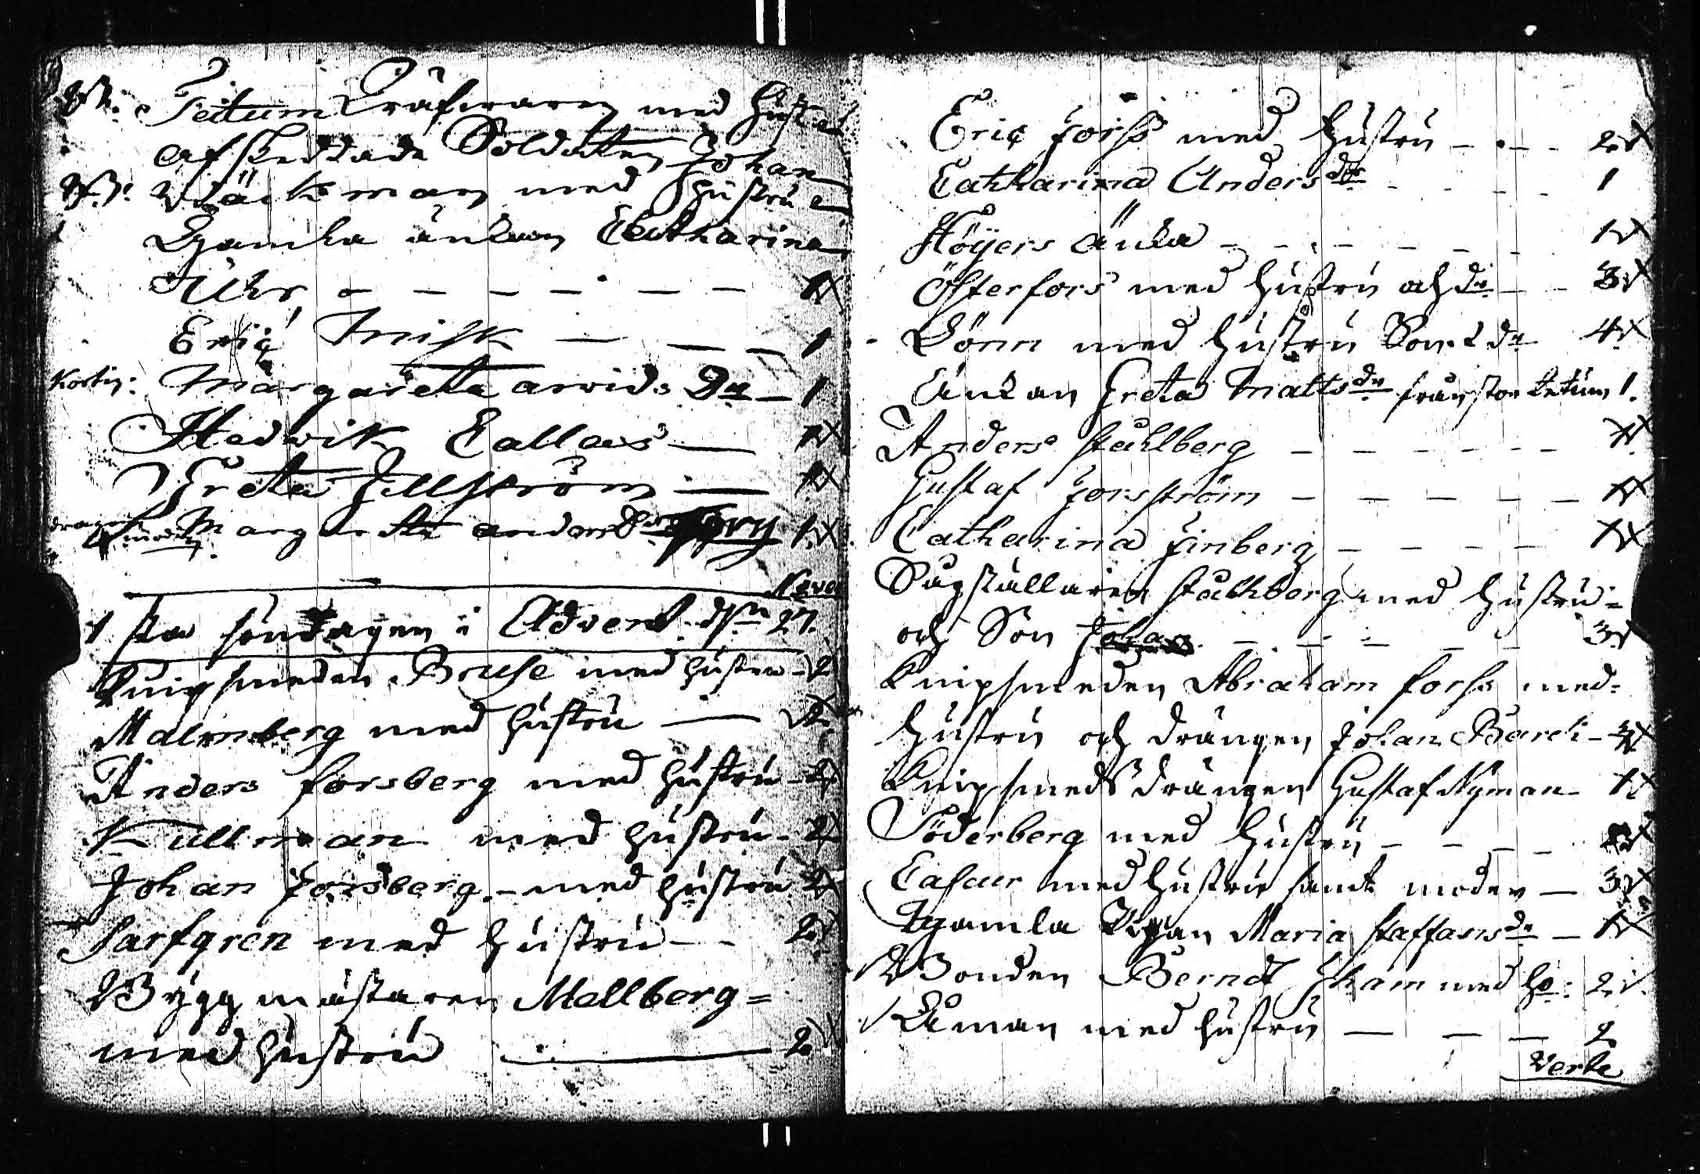 Teitum Gräfwaren med Hustru
afskeddade Soldaten Johan
Wäckman med Hustru
Gamla änkan Catharina
Uhr — — — — — 1
Eric Misk — — — 1
Margareta arvids Dr — 1
Hedwik Callas — 1
Greta Jellström — 1
Margareta anders 1
Nove
1 sta söndagen i Advent d 27.
Knipsmeden Bruse med hustru - 2
Malmberg med hustru — 2
Anders forsberg med hustru - 2
Kullman med hustru - 2
Johan Forsberg - med hustru 2
Sarfgren med hustru - - 2
Byggmästaren Mellberg =
med hustru — 2
Eric Forss med Hustru - - - 2
Catharina Anders dr - - - 1
Höyers Änka - - - - - 1
Österfors med hustru och dr - - 3
Lönn med hustru Son & dr 4
Änkan Greta Matts dr från stor Teitum 1.
Anders Stahlberg - - - - - 1
Gustaf Forsström - - - - - 1
Catharina Finberg - - - - 1
Stahlberg med Hustru =
och Son Johan - - - - - 3
Knipsmeden Abraham forss med =
Hustru och drängen Johan - 3
Knipsmeds drängen Gustaf Nyman - 1
Söderberg med Hustru - - - - 2
Caseur med Hustru samt moder — 3
Gamla Pigan Maria Staffans dr — 1
Bonden Berndt med H: 2
Åman med hustru — — — 2
Verte